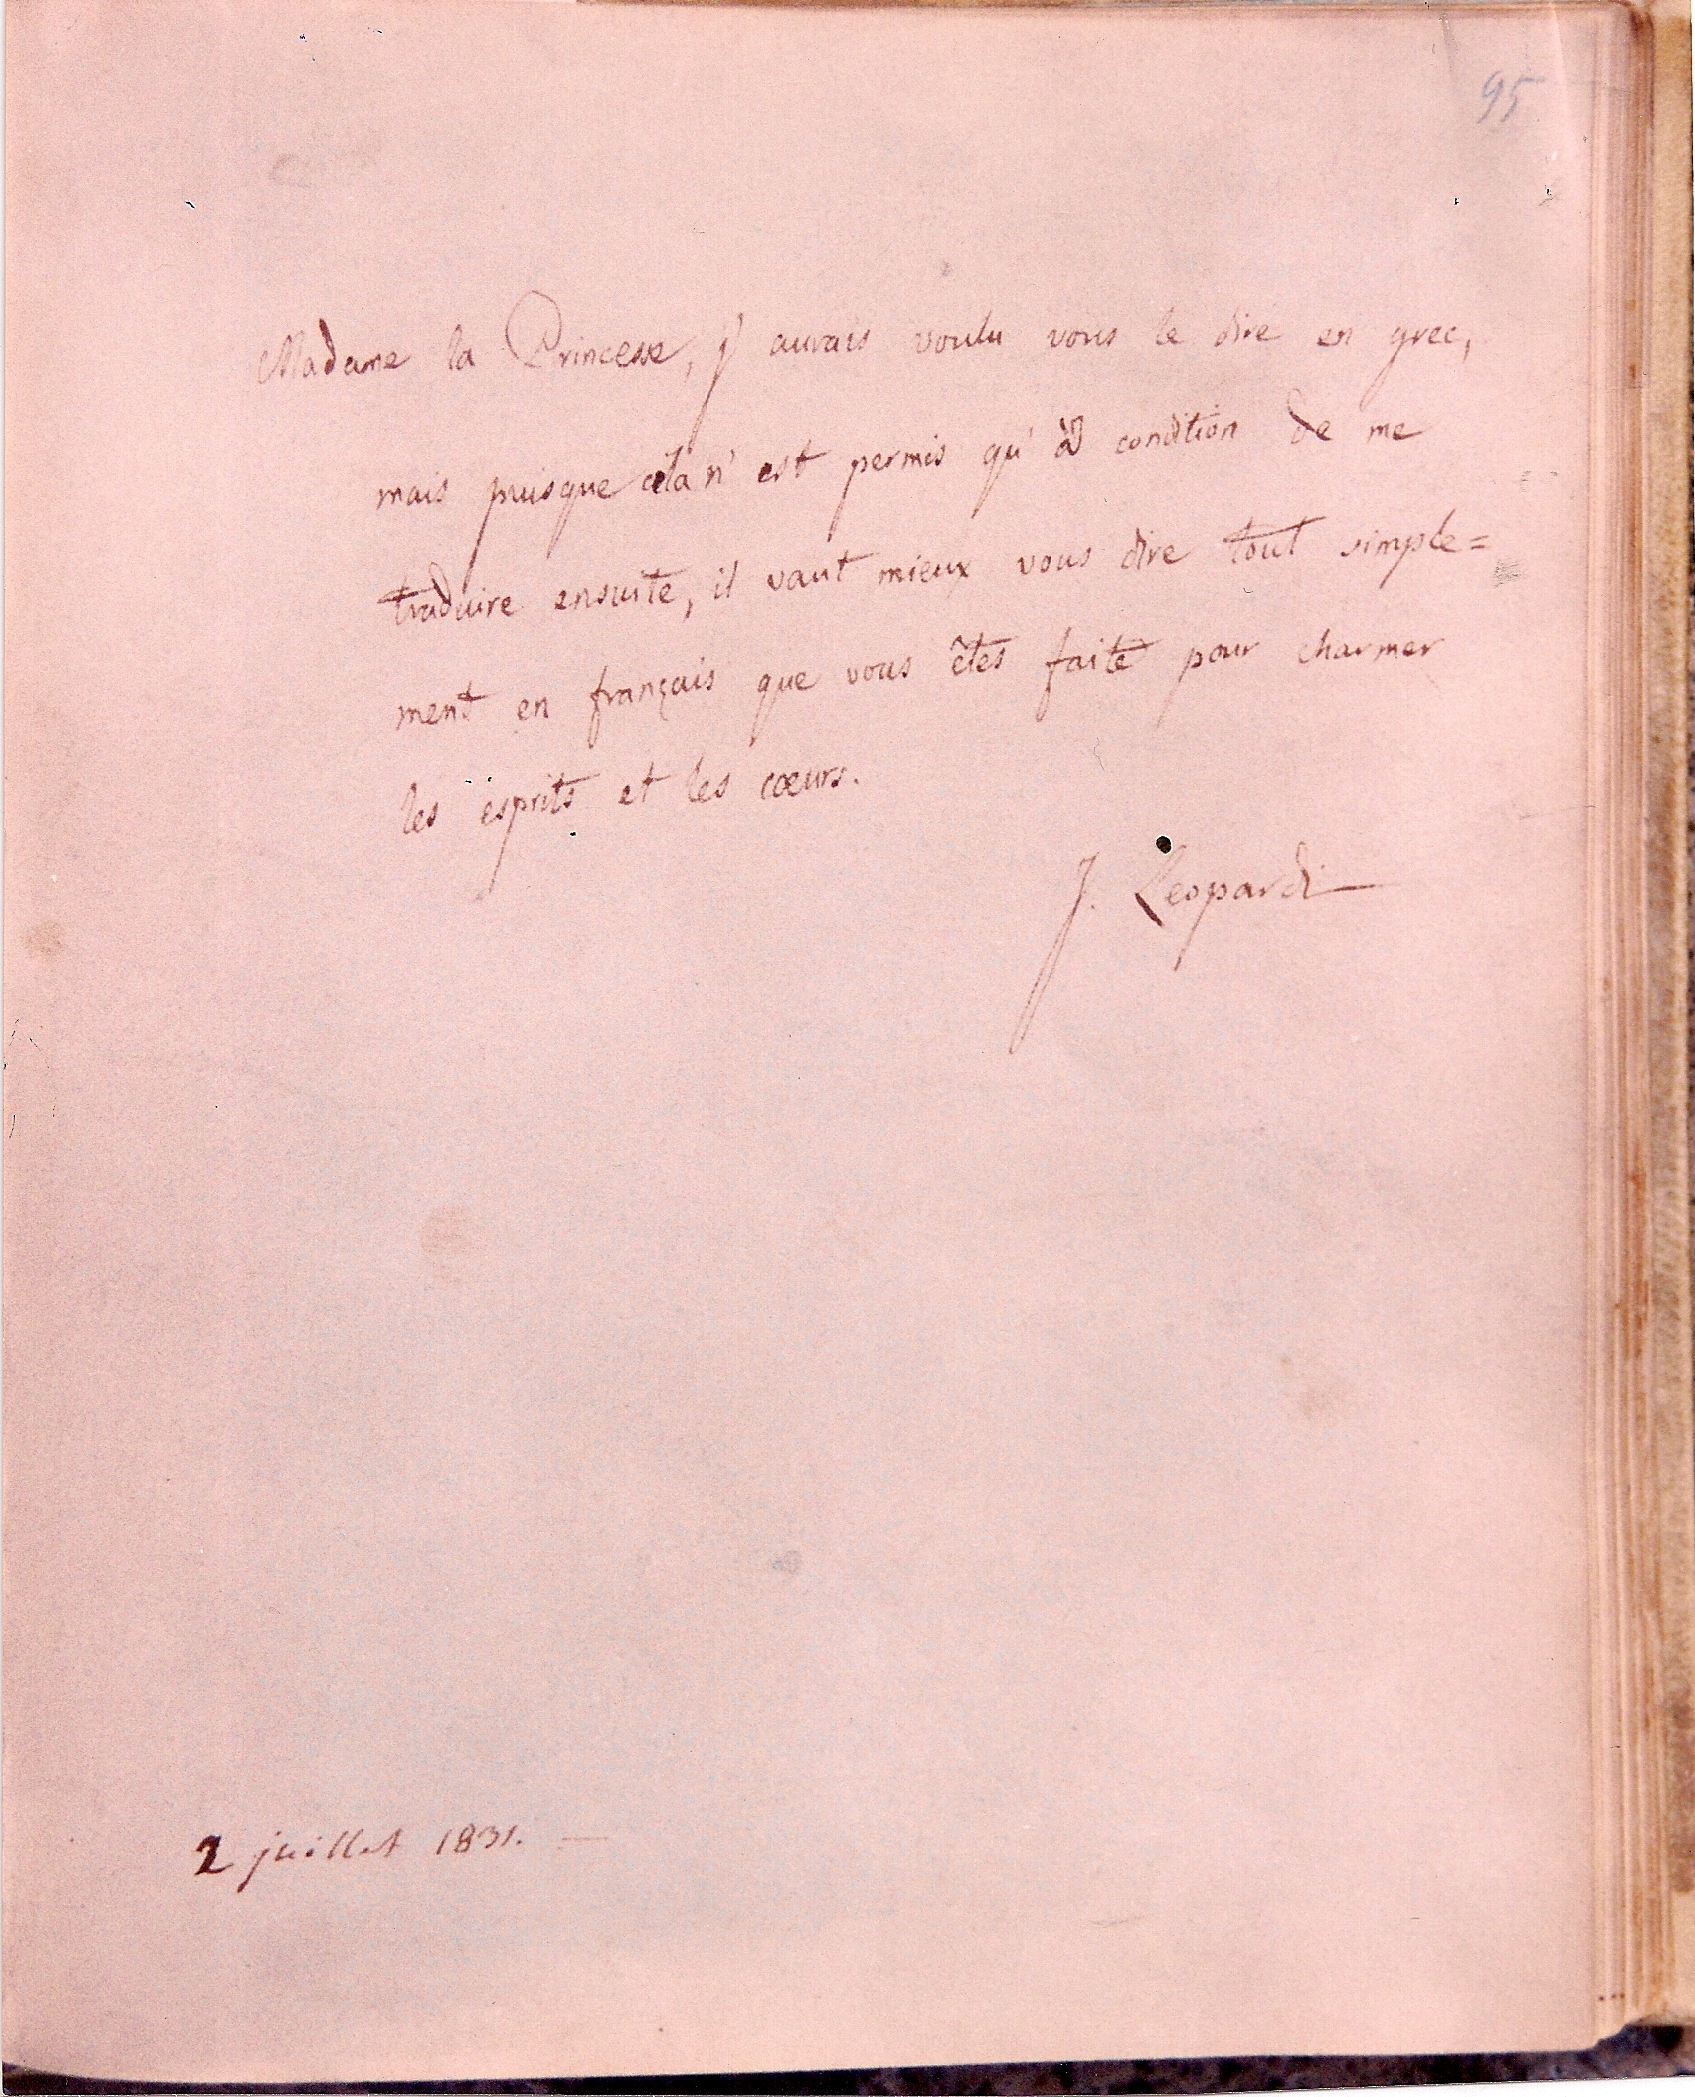 95
Madame la Princesse, j'aurais voulu vous le dire en grec,
mais puisque cela n'est permis qu'à condition de me
traduire ensuite, il vaut mieux vous dire tout simple=
ment en français que vous êtes faite pour charmer
les esprits et les cœurs.
J. Leopardi
2 juillet 1831.